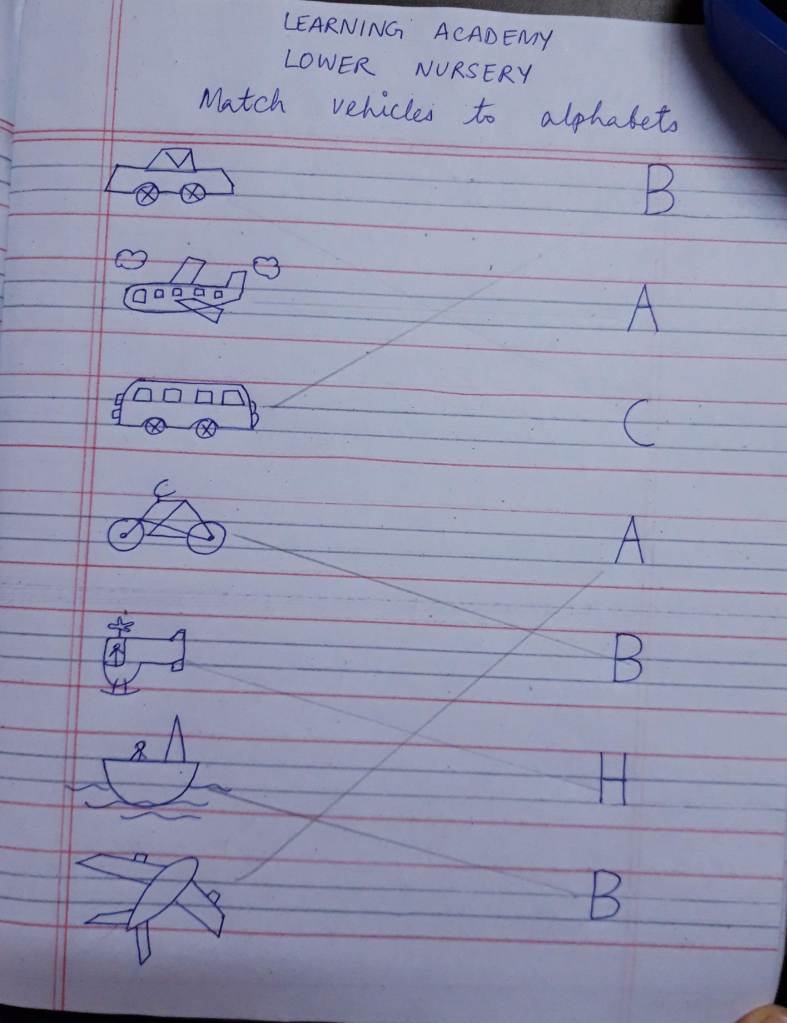 LEARNING ACADEMY
LOWER NURSERY
Match vehicles to alphabets
B
A
C
A
B
H
B